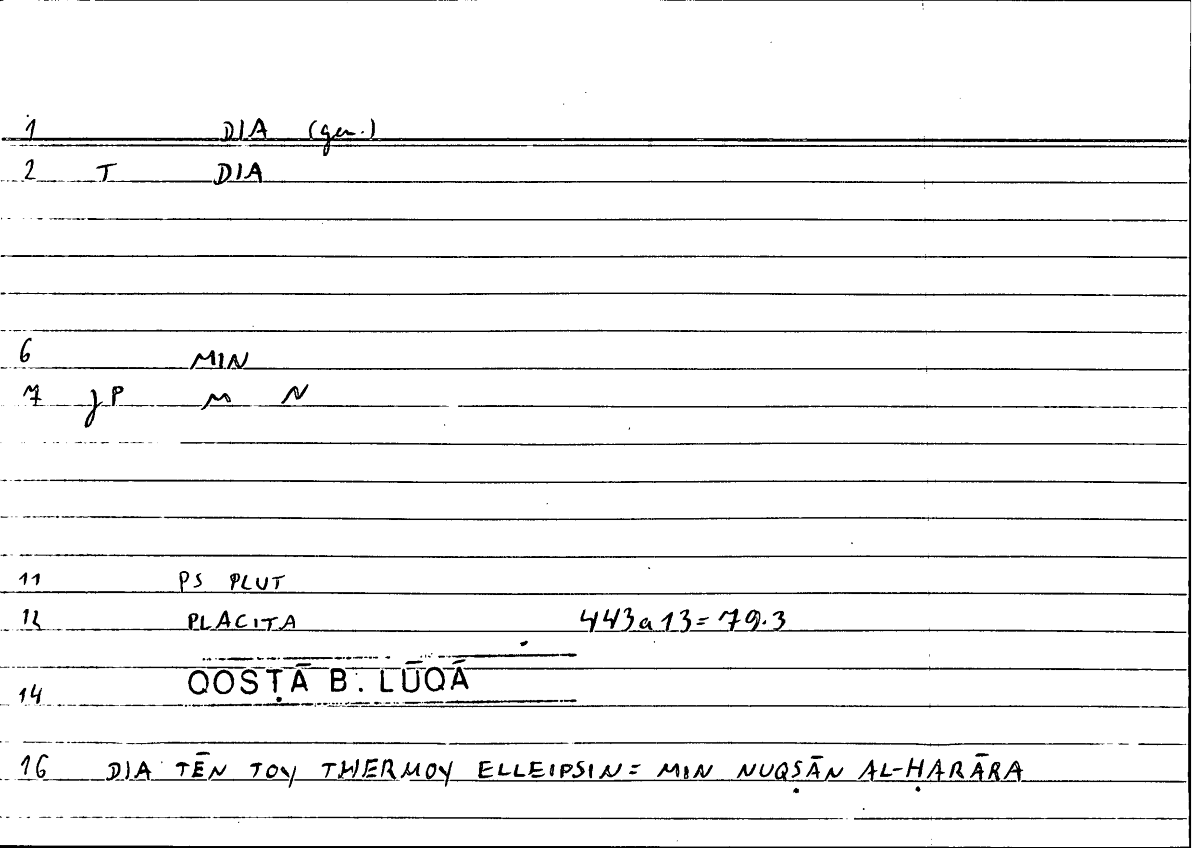 1 DIA (gen.)
2 T DIA
6 MIN
7 jP M N
11 PS PLUT
12 PLACITA 443a13=79.3
14 QOSṬĀ B. LŪQĀ
16 DIA TĒN TOY THERMOY ELLEIPSIN = MIN NUQṢĀN AL-ḤARĀRA